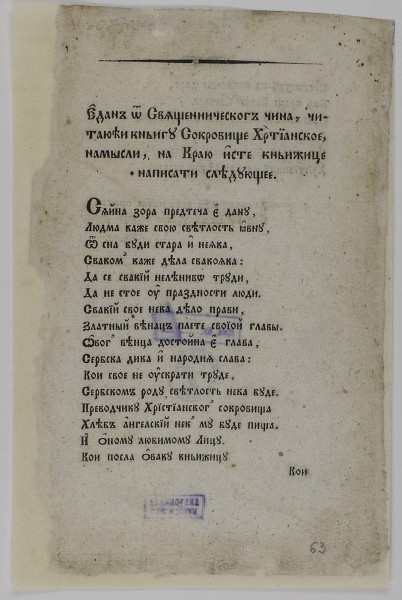 Єданъ ѿ Священническогъ чина, чи-
таюћи књигу Сокровище Хрⷭтїанское,
намысли, на Краю исте књижице
написати слѣдующее.
Сѧйна зора предтеча є дану,
Людма каже свою свѣтлость ѡвну,
Ѿ сна буди стара и неѧка,
Свакомꙋ каже дѣла свакоѧка:
Да се свакїй нелѣнивѡ труди,
Да не стое оу праздности люди.
Свакїй свое нека дѣло прави,
Златный вѣнацъ плете своїой главы.
Ѡвогꙋ вѣнца достойна є глава,
Сербска дика и народнѧ слава:
Кои свое не оускрати труде,
Сербскомъ роду свѣтлость нека буде.
Преводчику Хрїстїанскогꙋ сокровища
Хлѣбъ ангелскїй некꙋ му буде пища.
И ѻному любимому Лицу.
Кои посла ѻваку књижицу
Кои
63